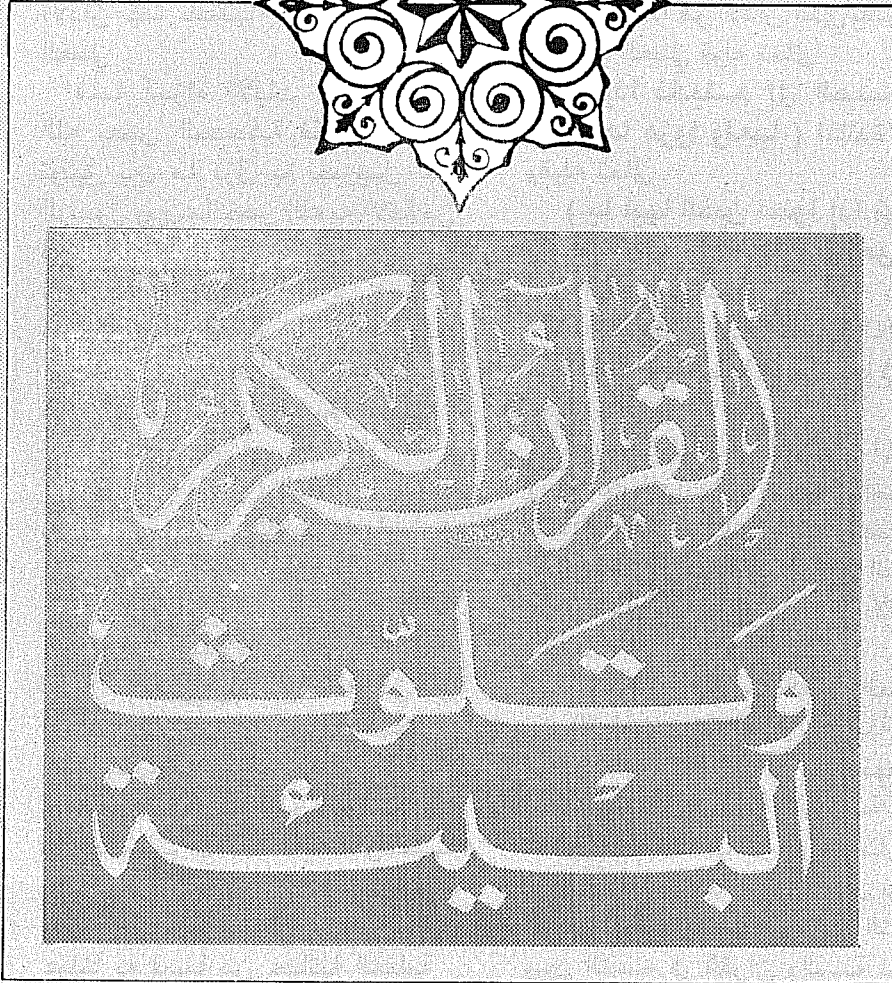 القرآن الكريم
وَتَلَوّثُ
البيئة